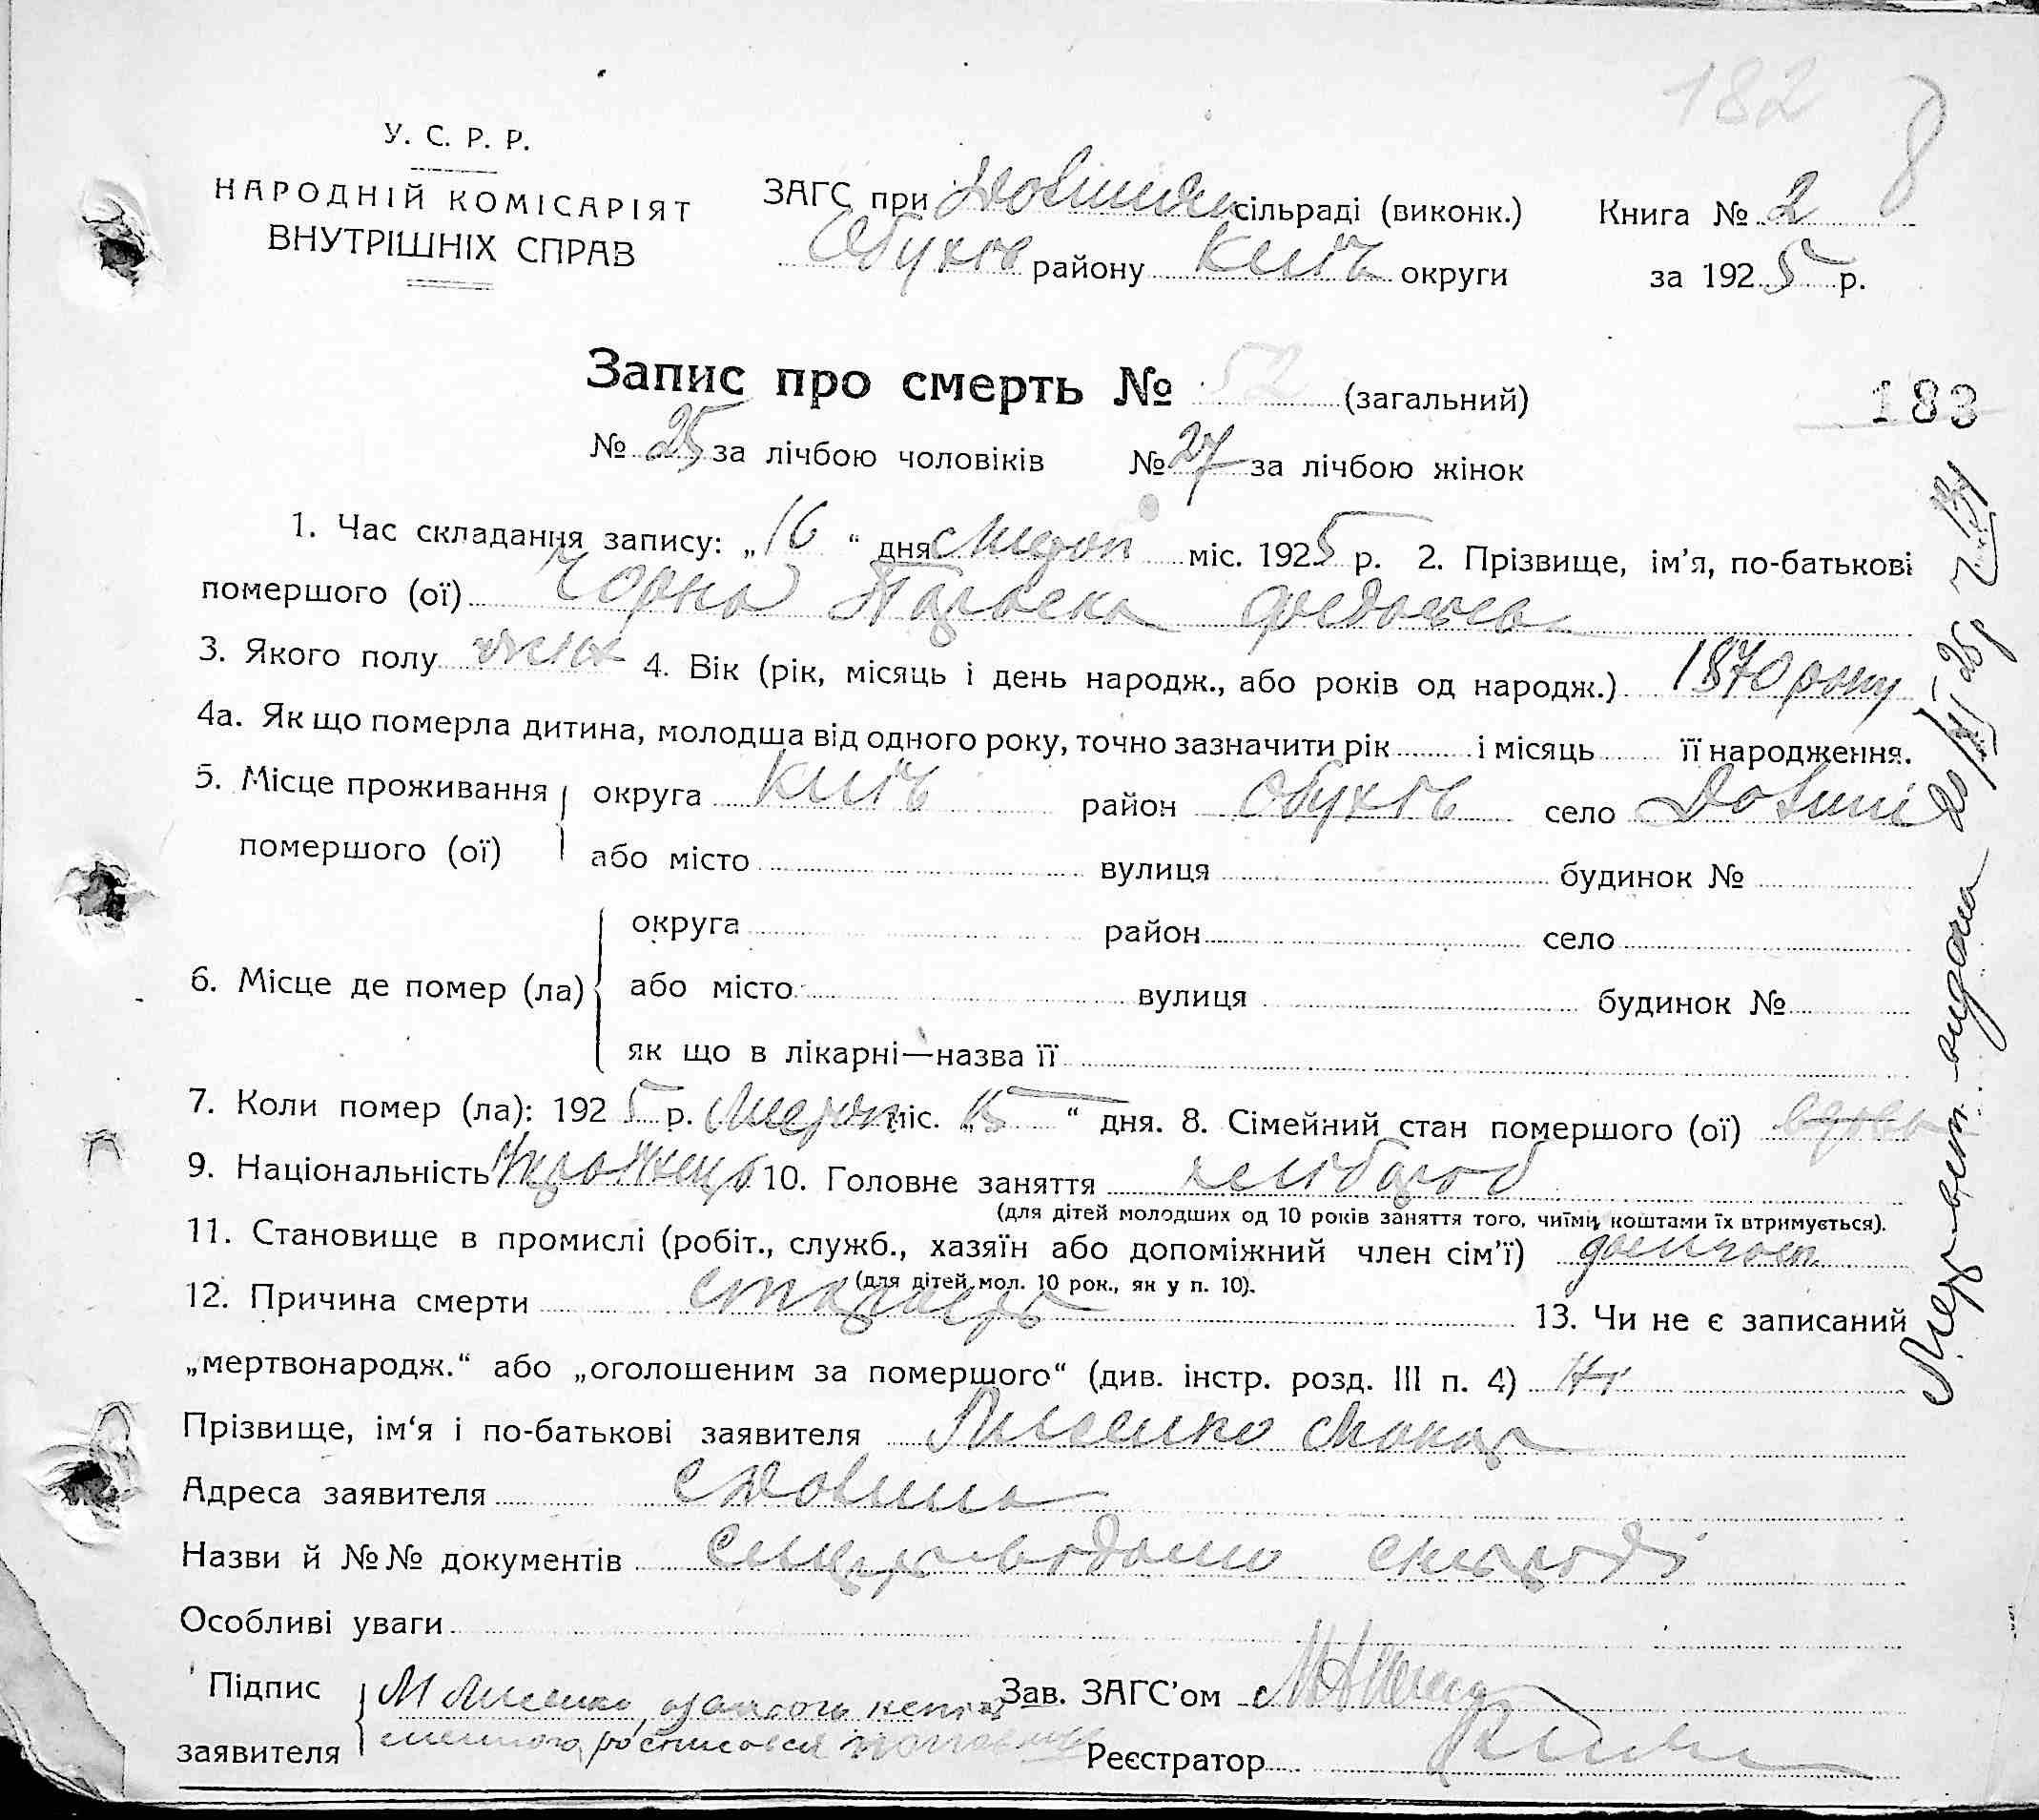 182 8
У. С. Р. Р.
НАРОДНІЙ КОМІСАРІЯТ
ВНУТРІШНІХ СПРАВ
ЗАГС при сільраді (виконк.) Книга № 2
Обухів району Київ округи за 1925 р.
Запис про смерть № 52 (загальний)
183
№ 25 за лічбою чоловіків № 27 за лічбою жінок
1. Час складання запису: „16“ дня міс. 1925 р. 2. Прізвище, ім’я, по-батькові
помершого (ої) Чорна Параска
3. Якого полу жіноч 4. Вік (рік, місяць і день народж., або років од народж.) 1870 року
4а. Як що померла дитина, молодша від одного року, точно зазначити рік і місяць її народження.
5. Місце проживання округа Київ район Обухів село
помершого (ої) або місто вулиця будинок №
округа район село
6. Місце де помер (ла) або місто вулиця будинок №
як що в лікарні—назва її
7. Коли помер (ла): 1925 р. міс. „15“ дня. 8. Сімейний стан помершого (ої) вдова
9. Національність Українець 10. Головне заняття хлібороб
(для дітей молодших од 10 років заняття того, чиїми коштами їх втримується).
11. Становище в промислі (робіт., служб., хазяїн або допоміжний член сім’ї)
(для дітей мол. 10 рок., як у п. 10).
12. Причина смерти старість 13. Чи не є записаний
„мертвонародж.“ або „оголошеним за помершого“ (див. інстр. розд. III п. 4) Ні
Прізвище, ім‘я і по-батькові заявителя Лисенко Макар
Адреса заявителя
Назви й №№ документів
Особливі уваги
Підпис М Лисенко, Зав. ЗАГС’ом
заявителя Реєстратор